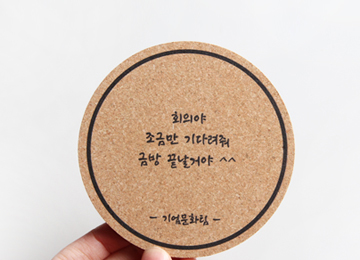 회의야
조금만 기다려줘
금방 끝날거야 ^^
- 기업문화팀 -